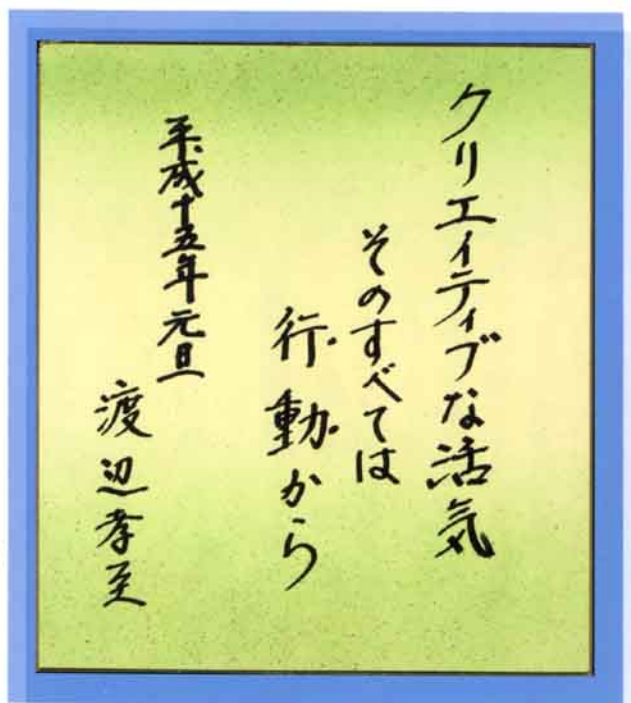 クリエイティブな活気
そのすべては
行動から
平成十五年元旦
渡辺孝至